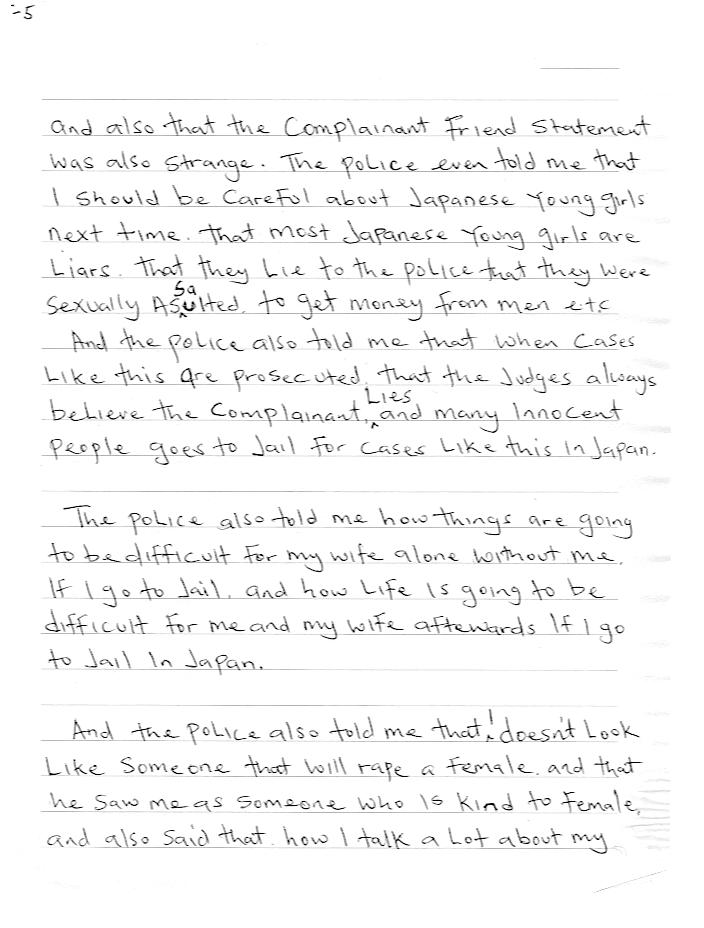 -5
and also that the Complainant Friend Statement
was also strange. The police even told me that
I should be careful about Japanese Young girls
next time. that most Japanese Young girls are
Liars. that they Lie to the police that they were
Sexually Assaulted, to get money from men e.t.c
And the police also told me that when cases
Like this are prosecuted, that the Judges always
believe the Complainant, Lies and many Innocent
people goes to Jail for cases Like this in Japan.
The police also told me how things are going
to be difficult for my wife alone without me,
If I go to Jail, and how Life is going to be
difficult for me and my wife aftewards If I go
to Jail in Japan.
And the police also told me that I doesn't Look
Like Someone that will rape a female, and that
he saw me as someone who is kind to Female,
and also said that how I talk a Lot about my